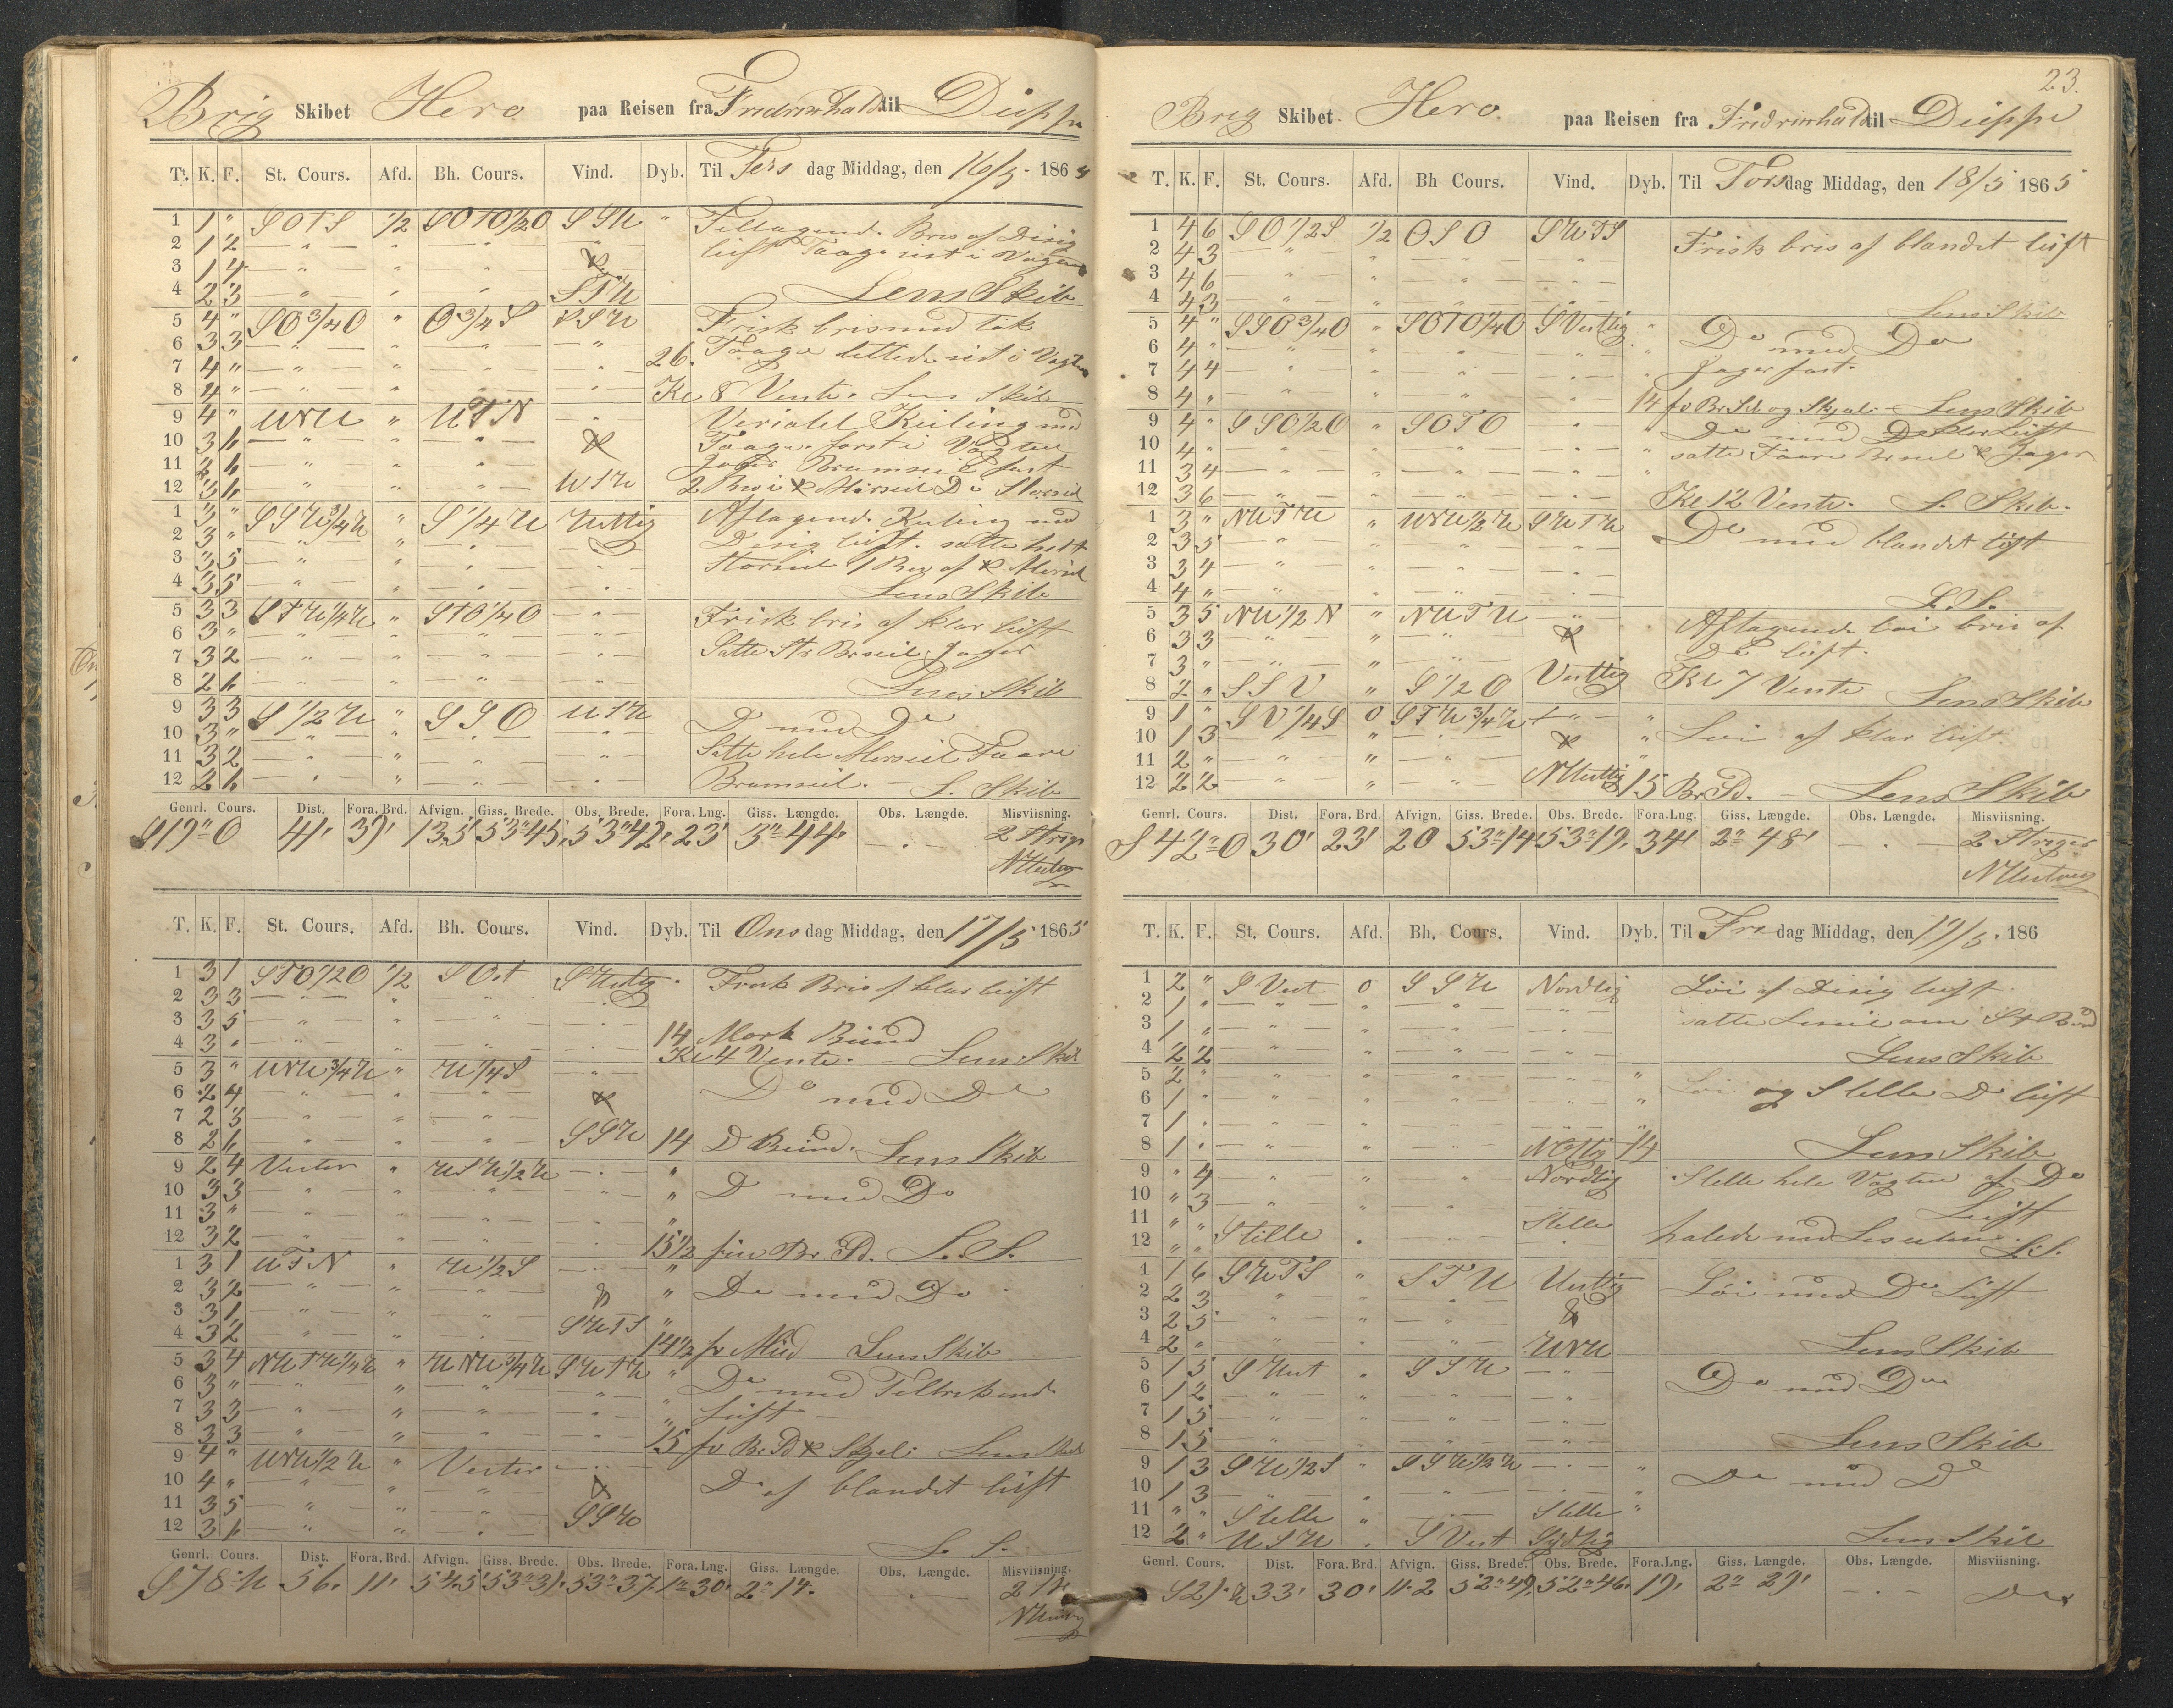 Brig Skibet Hero paa Reisen fra Fredrikshald til Dieppe
T. K. F. St. Cours. Afd. Bh. Cours. Vind. Dyb. Til Tirsdag Middag, den 16/5 - 1865
1 1 " SOTS 1/2 SOTO1/2O SSW " Tiltagende Bris af Disig
2 1 2 luft Taage sist i Vagten
3 1 4 &
4 2 3 STW Lens Skib
5 4 " SO3/4O " O3/4S SSW Frisk bris med tæk
6 3 3 Taage lettede sist i Vagten
7 4 " 26.
8 4 " Kl 8 Vente. Lens Skib
9 4 " WNW " WTN Kuling med
10 3 6 & Taage først i Vagten
11 Jager Bramseil fast
12 3 6 WTW
1 3 " SSW3/4W " S1/4W Vestlig Aftagende Kuling med
2 3 " Disig luft. satte helt
3 3 5 Storseil 1 Rev af & Mersseil
4 3 5 Lens Skib
5 3 3 STW1/4W " STO1/4O Frisk bris af klar luft
6 3 " Satte Str Brseil, Jager
7 3 2
8 2 6 Lens Skib
9 3 3 S1/2W " SSO WTW Do med Do
10 3 "
11 3 2 Satte hele Mersseil Faare
12 2 6 Bramseil. - L. Skib
Genrl. Cours. Dist. Fora. Brd. Afvign. Giss. Brede. Obs. Brede. Fora. Lng. Giss. Længde. Obs. Længde. Misviisning.
S19°O 41' 39' 13,5' 53°45' 53°42' 23' 3°44' 2 Streger
NVestvig
T. K. F. St. Cours. Afd. Bh. Cours. Vind. Dyb. Til Onsdag Middag, den 17/5 1865
1 3 1 STO1/2O 1/2 SOst SVestlig Frisk Bris af klar luft
2 3 3
3 3 5 14 Mork Bund
4 3 " Kl 4 Vente. - Lens Skib
5 3 " WNW3/4W " W1/4S Do med Do
6 2 4 &
7 2 3
8 2 6 SSW 14 Do Bund. Lens Skib
9 2 4 Vester " WSW1/2W " Do med Do
10 3 3 "
11 3 " "
12 3 2 15 1/2 fin Br Sd. L. S.
1 3 1 WTN " W1/2S " Do med Do
2 3 2 & "
3 3 1 SWTS "
4 3 2 14 1/2 fv Mud Lens Skib
5 3 4 NWTW1/4W " WNW3/4W SWTW " Do med
6 3 "
7 3 3 " Luft
8 3 3 15 fv Br Sd & Skjel: Lens Skib
9 4 " WNW1/2W " Vester Do af blandet luft
10 4 " &
11 3 5 SSW
12 3 6 L. S.
Genrl. Cours. Dist. Fora. Brd. Afvign. Giss. Brede. Obs. Brede. Fora. Lng. Giss. Længde. Obs. Længde. Misviisning.
S78°W 56' 11' 54,5' 53°31' 53°37' 1°30' 2°14' 2 Str
NVestvig
23.
Brig Skibet Hero. paa Reisen fra Fredrikshald til Dieppe
T. K. F. St. Cours. Afd. Bh Cours. Vind. Dyb. Til Torsdag Middag, den 18/5 1865
1 4 6 SO1/2S 1/2 OSO SWTS Frisk bris af blandet luft
2 4 3
3 4 6
4 4 3 Lens Skib
5 4 " SSO3/4O " SOTO1/4O SVestlig " Do med Do
6 4 "
7 4 4 " Jager fast.
8 4 " 14 fv Br Sd og Skjæl. - Lens Skib
9 4 " SSO1/2O " SOTO " Do med Do klar Luft
10 4 " satte Faare Brseil & Jager
11 3 4
12 3 6 Kl 12 Vente. L. Skib.
1 3 " NWTW " WNW1/2W SWTW Do med blandet luft
2 3 5
3 3 4
4 4 " L. S.
5 3 5 NW1/2N " NWTW Aftagende løi bris af
6 3 3 & Do luft.
7 3 " Vestlig Kl 7 Vente Lens Skib
8 2 " SSV " S1/2O
9 1 " SV1/4S 0 STW3/4W " Løi af klar luft.
10 1 3 &
11 2 "
12 2 2 NVestlig 15 Br Sd. - Lens Skib
Genrl. Cours. Dist. Fora. Brd. Afvign. Giss. Brede. Obs. Brede. Fora. Lng. Giss. Længde. Obs. Længde. Misviisning.
S42°O 30' 23' 20 53°14' 53°19' 34' 2°48' 2 Streger
NVestvig
T. K. F. St. Cours. Afd. Bh. Cours. Vind. Dyb. Til Fredag Middag, den 19/5. 186
1 2 " SVest 0 SSW Nordlig Løi af Disig luft.
2 1 " satte Leseil om St Bord
3 1 "
4 2 2 Lens Skib
5 2 " " Løi og Stille Do luft
6 1 "
7 1 "
8 1 " NOstlig 14 Lens Skib
9 " 4 Nordlig Stille hele Vagten af Do
10 " 3 Luft
11 " " Stille Stille halede ned Leseilene.
12 " " L. S.
1 1 6 SWTS " STW Vestlig Løi med Do Luft
2 2 3 &
3 2 5
4 2 " WNW Lens Skib
5 1 5 SVest " STW Do med Do
6 1 2
7 1 5
8 1 5 Lens Skib
9 1 3 SW1/2S " SSW1/2W " Do med Do
10 1 3
11 " " Stille " Stille "
12 2 " WSW SVest Sydlig Lens Skib
Genrl. Cours. Dist. Fora. Brd. Afvign. Giss. Brede. Obs. Brede. Fora. Lng. Giss. Længde. Obs. Længde. Misviisning.
S21°W 33' 30' 11.2 52°49' 52°46' 19' 2°29' Do